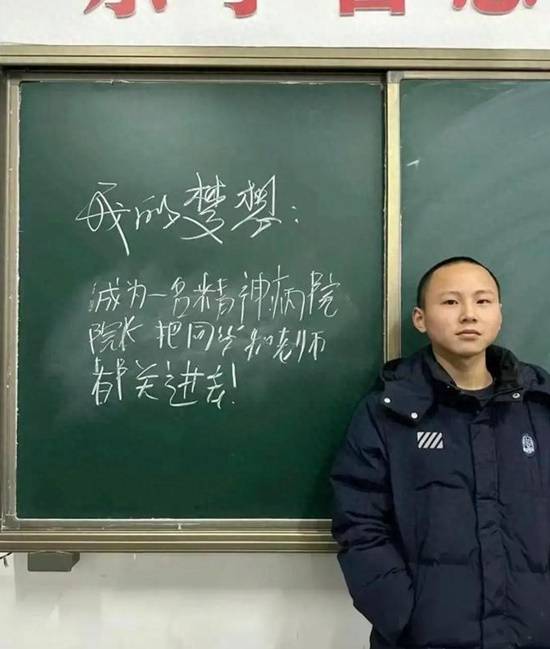 我的梦想：
成为一名精神病院
院长 把同学和老师
都关进去！